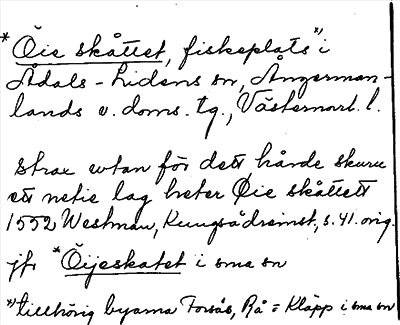 * Öie skåttet, fiskeplats *) i
Ådals-Lidens sn, Ångerman-
lands v. doms. tg., Västernorrl. l.
strax wtan för dett hårde skurw
ett netie lag heter Öie skåttett
1552 Westman, Kungsådreinst., s. 41. orig.
jfr * Öijeskatet i sma sn
*) tillhörig byarna Forsås, Rå o Kläpp i sma sn